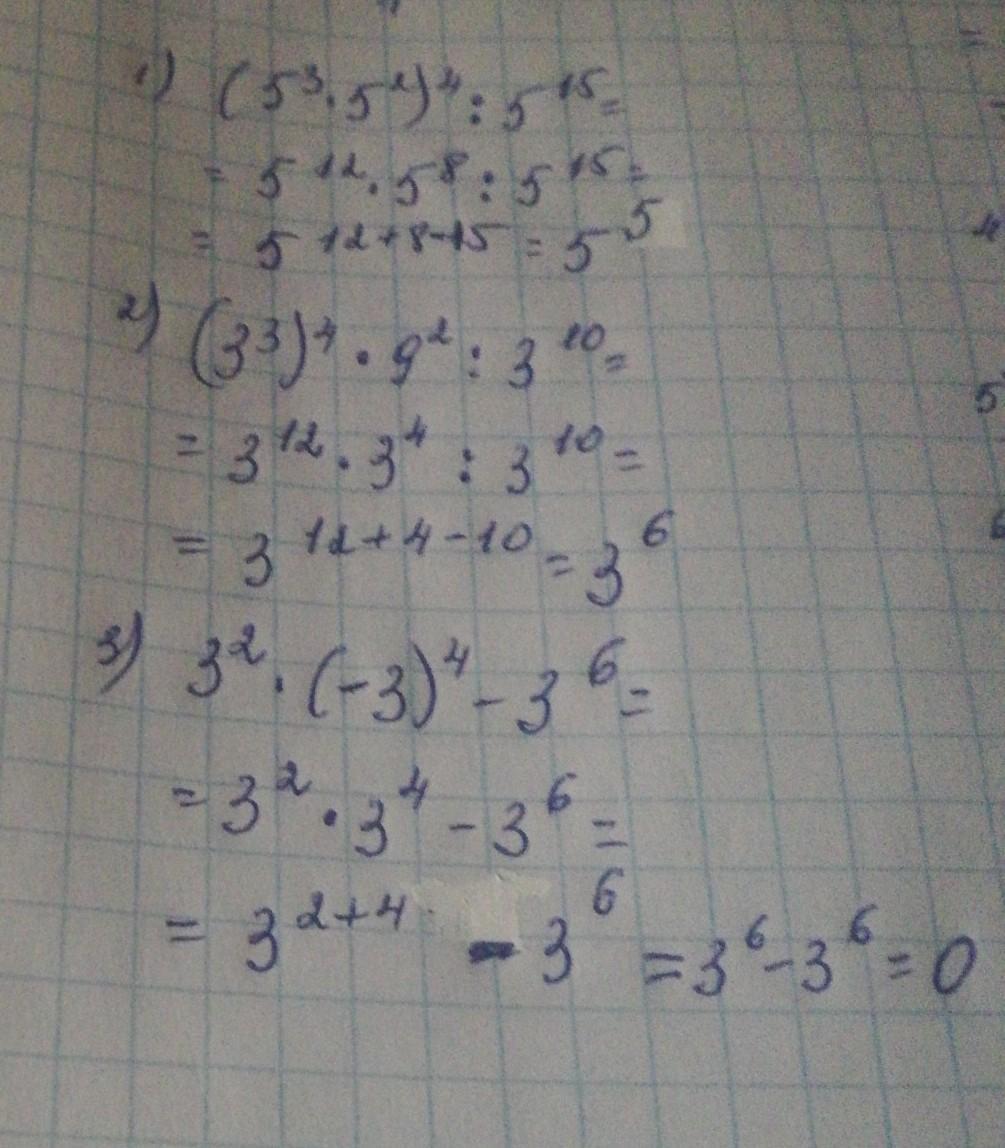 1) (5³·5²)⁴ : 5¹⁵ =
= 5¹²·5⁸ : 5¹⁵ =
= 5¹²⁺⁸⁻¹⁵ = 5⁵
2) (3³)⁴ · 9² : 3¹⁰ =
= 3¹² · 3⁴ : 3¹⁰ =
= 3¹²⁺⁴⁻¹⁰ = 3⁶
3) 3² · (-3)⁴ - 3⁶ =
= 3² · 3⁴ - 3⁶ =
= 3²⁺⁴ - 3⁶ = 3⁶ - 3⁶ = 0